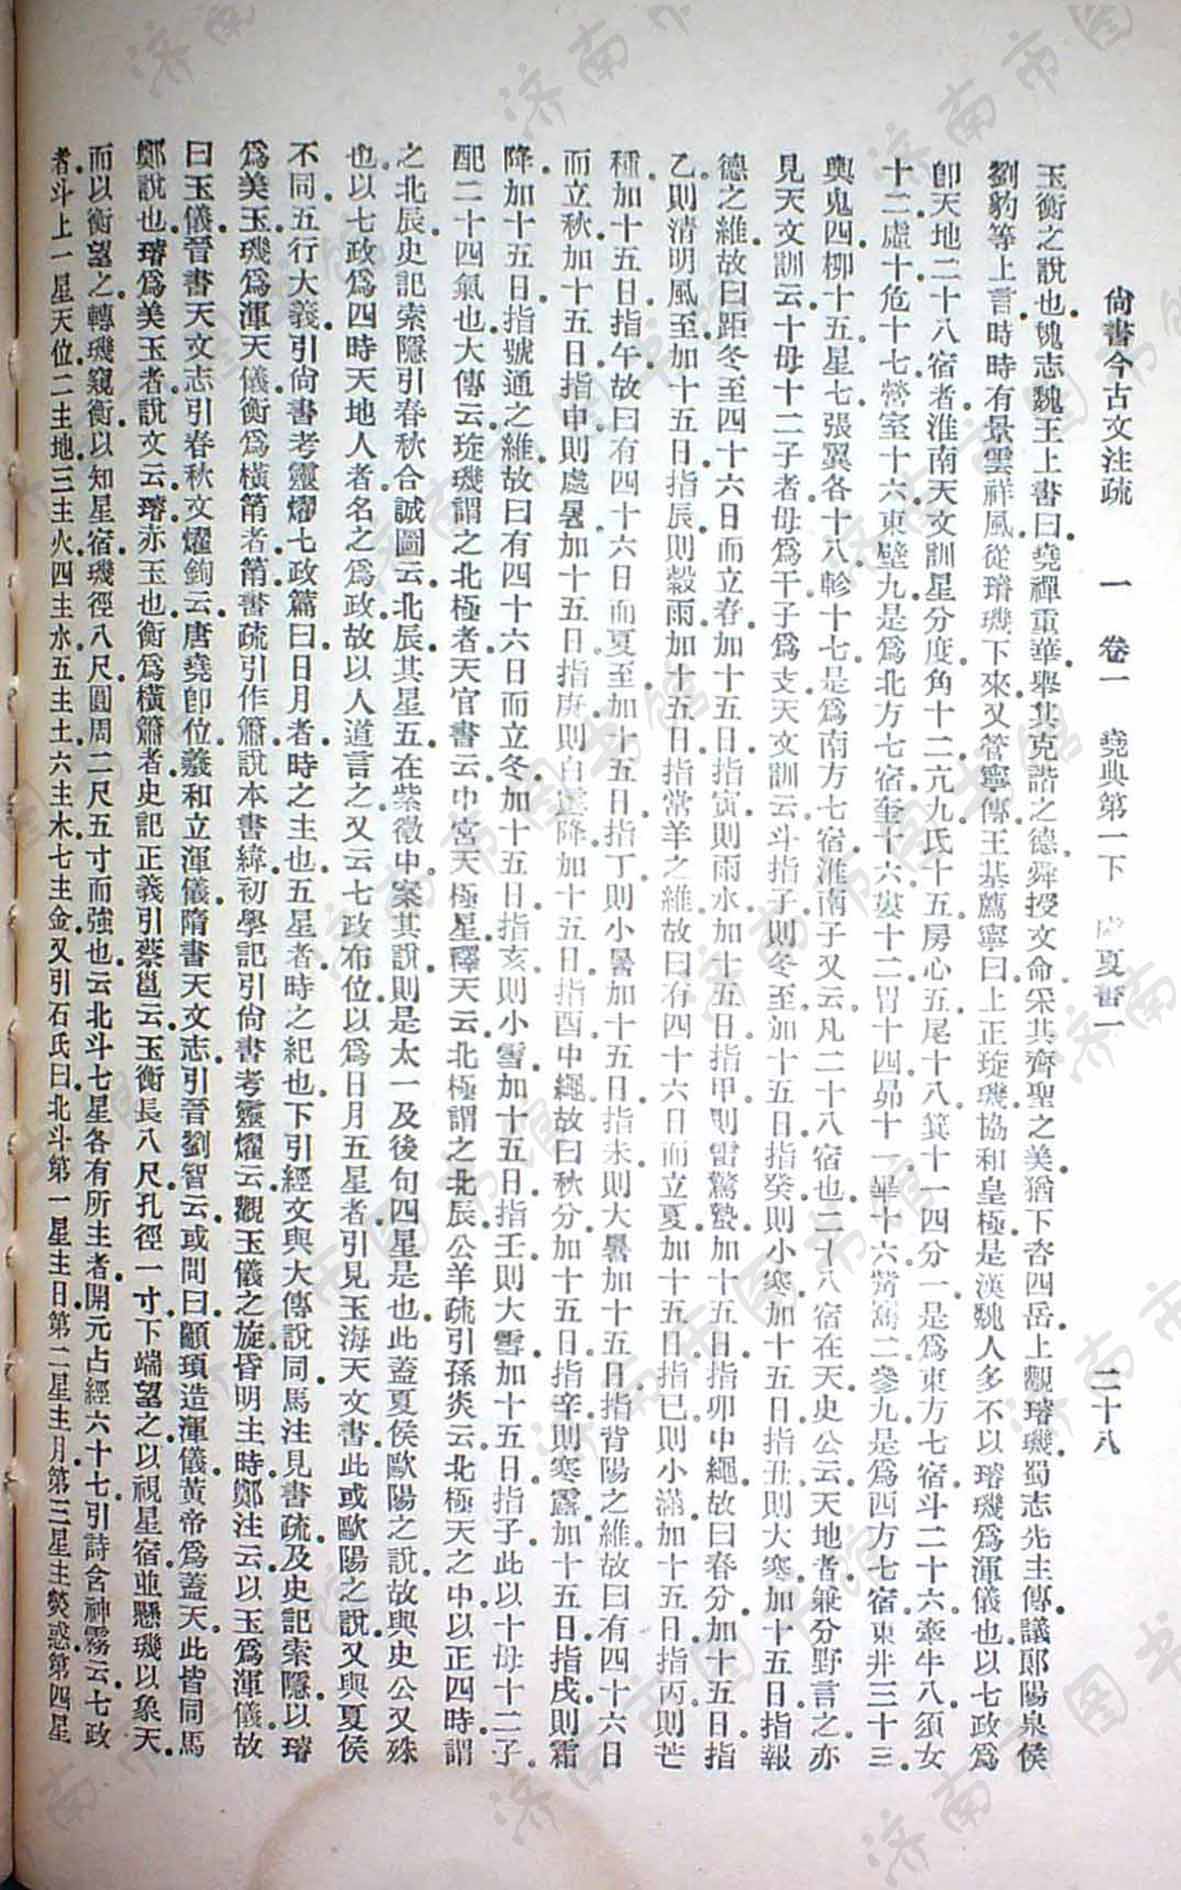 尙書今古文注疏　一　卷一　堯典第一下　虞夏書一　二十八
玉衡之說也魏志魏王上書曰堯禪重華舉其克諧之德舜授文命采其齊聖之美猶下咨四岳上觀璿璣蜀志先主傳議郞陽泉侯
劉豹等上言時時有景雲祥風從璿璣下來又管寧傳王基薦寧曰上正琁璣協和皇極是漢魏人多不以璿璣爲渾儀也以七政爲
卽天地二十八宿者淮南天文訓星分度角十二亢九氐十五房心五尾十八箕十一四分一是爲東方七宿斗二十六牽牛八須女
十二虛十危十七營室十六東壁九是爲北方七宿奎十六婁十二胃十四昴十一畢十六觜觿二參九是爲西方七宿東井三十三
輿鬼四柳十五星七張翼各十八軫十七是爲南方七宿淮南子又云凡二十八宿也二十八宿在天史公云天地者兼分野言之亦
見天文訓云十母十二子者母爲干子爲支天文訓云斗指子則冬至加十五日指癸則小寒加十五日指丑則大寒加十五日指報
德之維故曰距冬至四十六日而立春加十五日指寅則雨水加十五日指甲則雷驚蟄加十五日指卯中繩故曰春分加十五日指
乙則清明風至加十五日指辰則穀雨加十五日指常羊之維故曰有四十六日而立夏加十五日指巳則小滿加十五日指丙則芒
種加十五日指午故曰有四十六日而夏至加十五日指丁則小暑加十五日指未則大暑加十五日指背陽之維故曰有四十六日
而立秋加十五日指申則處暑加十五日指庚則白露降加十五日指酉中繩故曰秋分加十五日指辛則寒露加十五日指戌則霜
降加十五日指號通之維故曰有四十六日而立冬加十五日指亥則小雪加十五日指壬則大雪加十五日指子此以十母十二子
配二十四氣也大傳云琁璣謂之北極者天官書云中宮天極星釋天云北極謂之北辰公羊疏引孫炎云北極天之中以正四時謂
之北辰史記索隱引春秋合誠圖云北辰其星五在紫微中案其說則是太一及後句四星是也此蓋夏侯歐陽之說故與史公又殊
也以七政爲四時天地人者名之爲政故以人道言之又云七政布位以爲日月五星者引見玉海天文書此或歐陽之說又與夏侯
不同五行大義引尙書考靈燿七政篇曰日月者時之主也五星者時之紀也下引經文與大傳說同馬注見書疏及史記索隱以璿
爲美玉璣爲渾天儀衡爲橫筩者筩書疏引作簫說本書緯初學記引尙書考靈燿云觀玉儀之旋昏明主時鄭注云以玉爲渾儀故
曰玉儀晉書天文志引春秋文燿鉤云唐堯卽位羲和立渾儀隋書天文志引晉劉智云或問曰顓頊造渾儀黃帝爲蓋天此皆同馬
鄭說也璿爲美玉者說文云璿亦玉也衡爲橫簫者史記正義引蔡邕云玉衡長八尺孔徑一寸下端望之以視星宿並懸璣以象天
而以衡望之轉璣窺衡以知星宿璣徑八尺圓周二尺五寸而強也云北斗七星各有所主者開元占經六十七引詩含神霧云七政
者斗上一星天位二主地三主火四主水五主土六主木七主金又引石氏曰北斗第一星主日第二星主月第三星主熒惑第四星